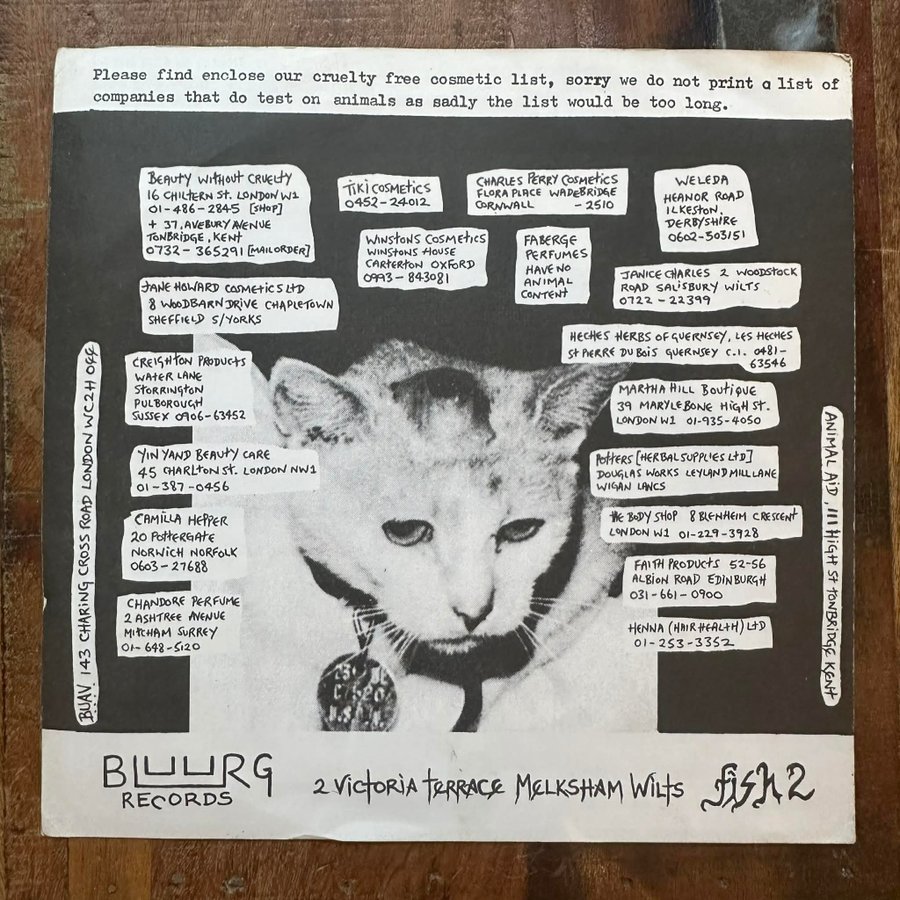 Please find enclose our cruelty free cosmetic list, sorry we do not print a list of
companies that do test on animals as sadly the list would be too long.
BEAUTY WITHOUT CRUELTY
16 CHILTERN ST. LONDON W1
01-486-2845 [SHOP]
+ 37, AVEBURY AVENUE
TONBRIDGE, KENT
0732-365291 [MAILORDER]
TIKI COSMETICS
0452-24012
CHARLES PERRY COSMETICS
FLORA PLACE WADEBRIDGE
CORNWALL -2510
WELEDA
HEANOR ROAD
ILKESTON.
DERBYSHIRE
0602-503151
WINSTONS COSMETICS
WINSTONS HOUSE
CARTERTON OXFORD
0993-843081
FABERGE
PERFUMES
HAVE NO
ANIMAL
CONTENT
JANICE CHARLES 2 WOODSTOCK
ROAD SALISBURY WILTS
0722-22399
JANE HOWARD COSMETICS LTD
8 WOODBARN DRIVE CHAPLETOWN
SHEFFIELD S/YORKS
HECHES HERBS OF GUERNSEY, LES HECHES
ST PIERRE DU BOIS GUERNSEY C.I. 0481-
63546
CREIGHTON PRODUCTS
WATER LANE
STORRINGTON
PULBOROUGH
SUSSEX 0906-63452
MARTHA HILL BOUTIQUE
39 MARYLEBONE HIGH ST.
LONDON W1 01-935-4050
YIN YAND BEAUTY CARE
45 CHARLTON ST. LONDON NW1
01-387-0456
POTTERS [HERBAL SUPPLIES LTD]
DOUGLAS WORKS LEYLAND MILL LANE
WIGAN LANCS
CAMILLA HEPPER
20 POTTERGATE
NORWICH NORFOLK
0603-27688
THE BODY SHOP 8 BLENHEIM CRESCENT
LONDON W1 01-229-3928
FAITH PRODUCTS 52-56
ALBION ROAD EDINBURGH
031-661-0900
CHANDORE PERFUME
2 ASHTREE AVENUE
MITCHAM SURREY
01-648-5120
HENNA (HAIR HEALTH) LTD
01-253-3352
BUAV 143 CHARING CROSS ROAD LONDON WC2H
ANIMAL AID, 111 HIGH ST TONBRIDGE KENT
BLUURG
RECORDS
2 VICTORIA TERRACE MELKSHAM WILTS
fish 2